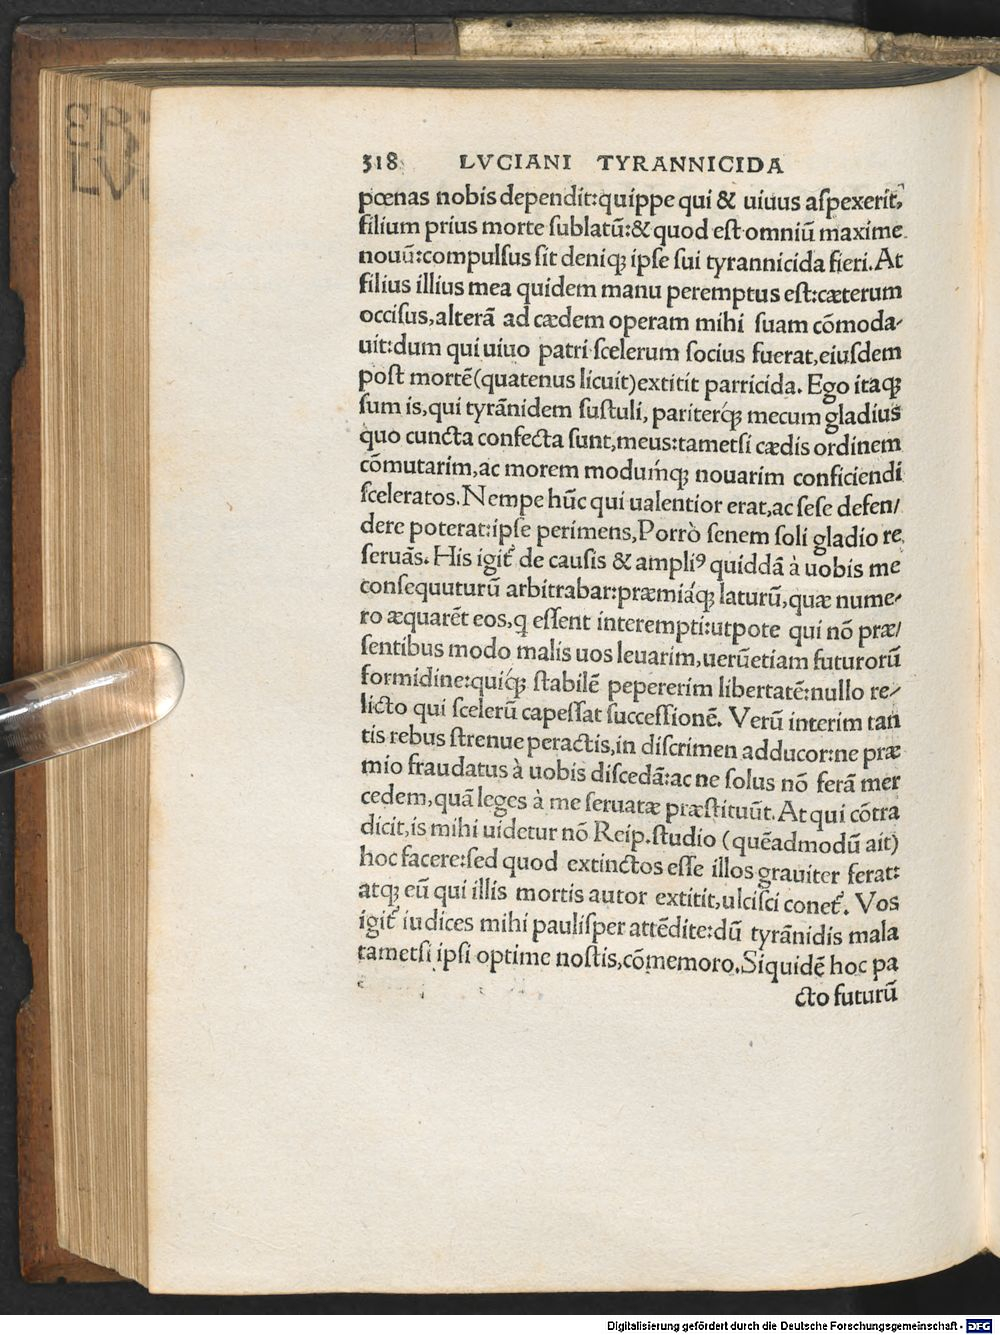 318 LVCIANI TYRANNICIDA
pœnas nobis dependit:quippe qui & uiuus aſpexerit,
filium prius morte ſublatū:& quod eſt omniū maxime
nouū:compulſus ſit deniqꝫ ipſe ſui tyrannicida fieri.At
filius illius mea quidem manu peremptus eſt:cæterum
occiſus,alterā ad cædem operam mihi ſuam cōmoda⸗
uit:dum qui uiuo patri ſcelerum ſocius fuerat,eiuſdem
poſt mortē(quatenus licuit)extitit parricida. Ego itaqꝫ
ſum is,qui tyrānidem ſuſtuli, pariterqꝫ́ mecum gladius
quo cuncta confecta ſunt,meus:tametſi cædis ordinem
cōmutarim,ac morem modumqꝫ́ nouarim conficiendi
ſceleratos.Nempe hūc qui ualentior erat,ac ſeſe defen/
dere poterat:ipſe perimens,Porrò ſenem ſoli gladio re
ſeruās.His igit᷑ de cauſis & ampliꝰ quiddā à uobis me
conſequuturū arbitrabar:præmiáqꝫ laturū,quæ nume⸗
ro æquarēt eos,q eſſent interempti:utpote qui nō præ/
ſentibus modo malis uos leuarim,uerūetiam futurorū
formidine:quiqꝫ́ ſtabilē pepererim libertatē:nullo re⸗
licto qui ſcelerū capeſſat ſucceſſionē. Verū interim tan
tis rebus ſtrenue peractis,in diſcrimen adducor:ne præ
mio fraudatus à uobis diſcedā:ac ne ſolus nō ferā mer
cedem,quā leges à me ſeruatæ præſtituūt.At qui cōtra
dicit,is mihi uidetur nō Reip.ſtudio (quēadmodū ait)
hoc facere:ſed quod extinctos eſſe illos grauiter ferat:
atqꝫ eū qui illis mortis autor extitit,ulciſci conet᷑. Vos
igit᷑ iudices mihi pauliſper attēdite:dū tyrānidis mala
tametſi ipſi optime noſtis,cōmemoro.Siquidē hoc pa
cto futurū
Digitalisierung gefördert durch die Deutsche Forschungsgemeinschaft - DFG